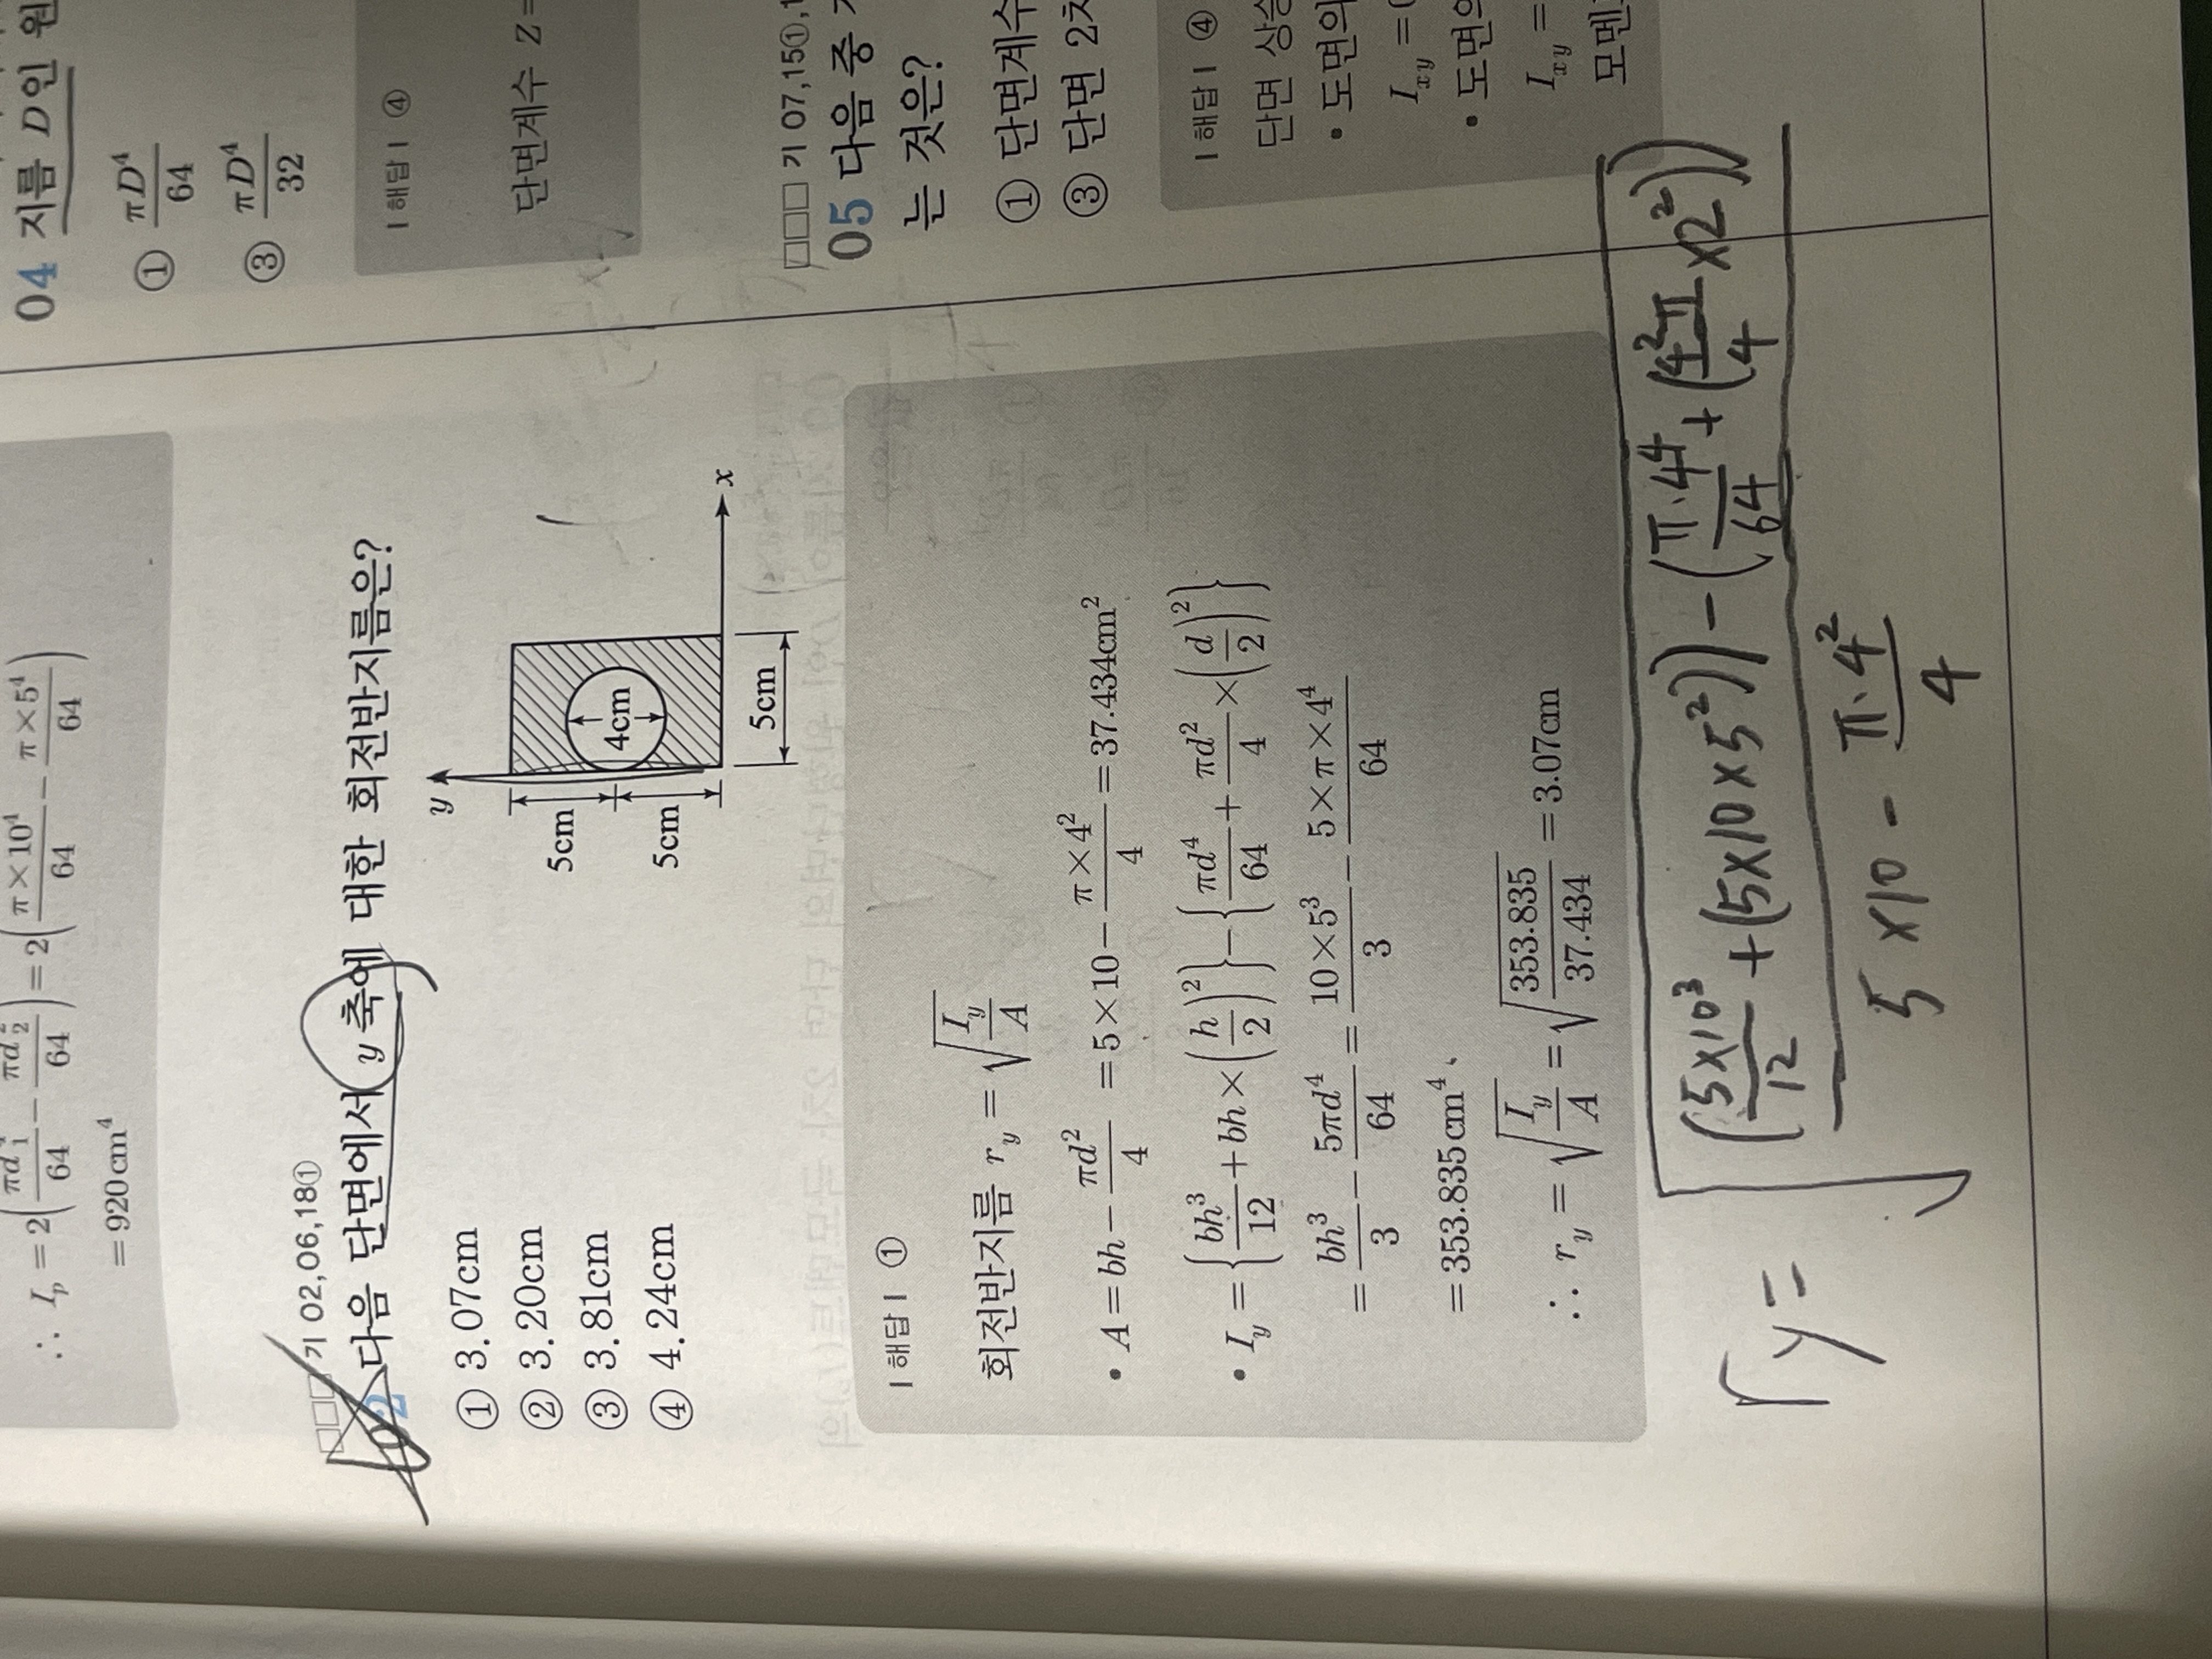 ∴ I_p = 2(πd₁⁴/64 − πd₂⁴/64) = 2(π×10⁴/64 − π×5⁴/64)
= 920cm⁴
□□□ 기 02,06,18①
02 다음 단면에서 y 축에 대한 회전반지름은?
① 3.07cm
② 3.20cm
③ 3.81cm
④ 4.24cm
y
5cm
5cm
4cm
5cm
x
| 해답 | ①
회전반지름 r_y = √(I_y/A)
• A = bh − πd²/4 = 5×10 − π×4²/4 = 37.434cm²
• I_y = {bh³/12 + bh×(h/2)²} − {πd⁴/64 + πd²/4×(d/2)²}
= bh³/3 − 5πd⁴/64 = 10×5³/3 − 5×π×4⁴/64
= 353.835cm⁴
∴ r_y = √(I_y/A) = √(353.835/37.434) = 3.07cm
ry = √((5×10³/12 + (5×10×5²)) − (π·4⁴/64 + (4²π/4 ×2²)) / 5×10 − π·4²/4
04 지름 D인 원
① πD⁴/64
③ πD⁴/32
| 해답 | ④
단면계수 Z =
□□□ 기 07,15①,
05 다음 중
는 것은?
① 단면계수
③ 단면 2차
| 해답 | ④
단면 상승
• 도면의
I_xy =
• 도면의
I_xy =
모멘